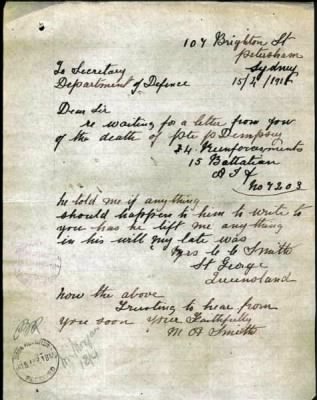 107 Brighton St
Petersham
Sydney
15/4/1918
To Secretary
Department of Defince
Dear Sir
re waiting for a letter from you
of the death of Pte P Dempsey
24 Reinforcements
15 Battalian
A I F
No 7203
he told me if anything
should happen to him to write to
you has he lift me anything
in his will my late was
Mrs C C Smith
St George
Queensland
now the above
Trusting to hear from
you soon your Faithfully
M A Smith